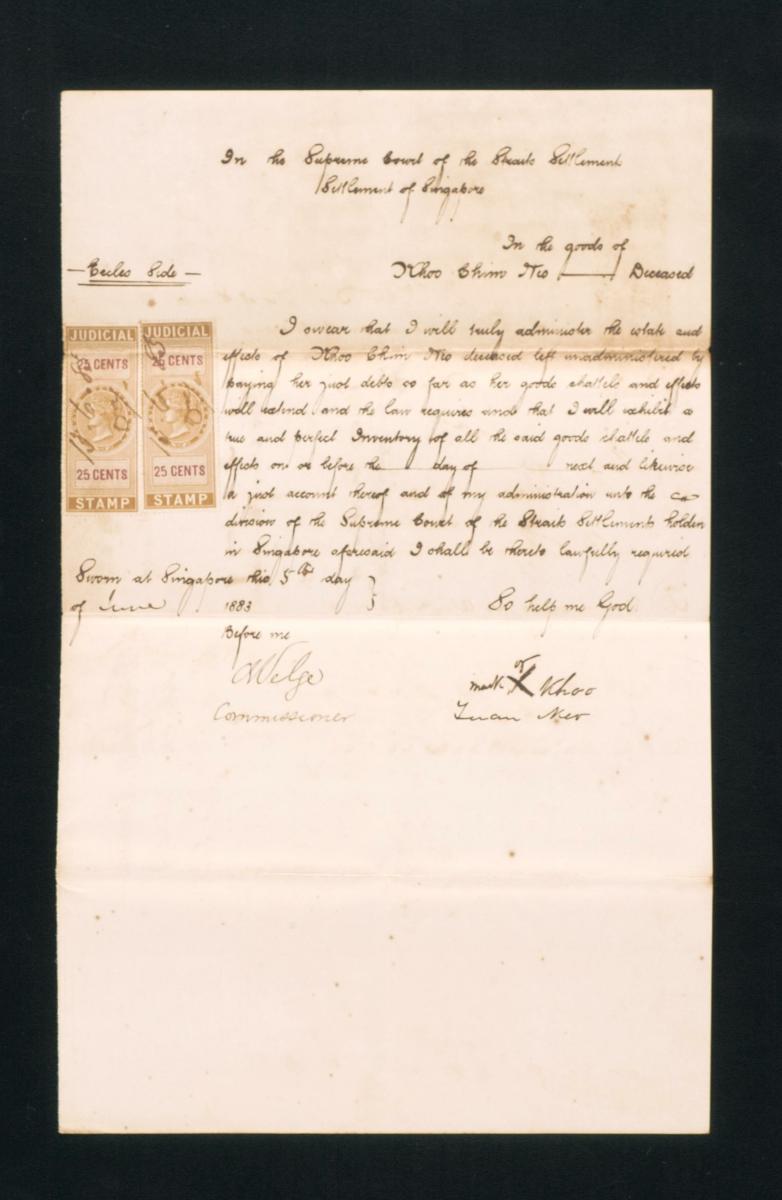 In the Supreme Court of the Straits Settlement
Settlement of Singapore
In the goods of
— Eccles Side —
Khoo Chim Neo — Deceased
I swear that I will truly administer the estate and
effects of Khoo Chim Neo deceased left unadministered by
paying her just debts so far as her goods chattels and effects
will extend and the law requires and that I will exhibit a
true and perfect Inventory of all the said goods chattels and
effects on or before the day of next and likewise
a just account thereof and of my administration unto the
division of the Supreme Court of the Straits Settlements holden
in Singapore aforesaid I shall be thereto lawfully required
JUDICIAL
25 CENTS
25 CENTS
STAMP
JUDICIAL
25 CENTS
25 CENTS
STAMP
Sworn at Singapore this 5th day }
of June 1883
So help me God.
Before me
Commissioner
mark of X Khoo
Tuan Neo